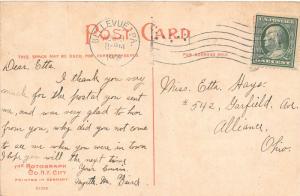 POST CARD
BELLEVUE, PA.
THIS SPACE MAY BE USED FOR
FOR ADDRESS ONLY
Dear Etta
I thank you very
much for the postal you sent
me, and was very glad to hear
from you, why did you not come
to see me when you were in town
I hope you will the next time
Your Cousin
Miss. Etta Hays.
#542, Garfield Av.
Alliance,
Ohio.
THE ROTOGRAPH
CO. N.Y. CITY
PRINTED IN GERMANY